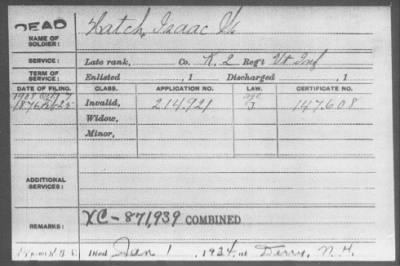 DEAD
NAME OF SOLDIER:
Hatch, Isaac
SERVICE:
Late rank, Co. K. 2 Reg't Vt. Inf
TERM OF SERVICE:
Enlisted , 1 Discharged , 1
DATE OF FILING. CLASS. APPLICATION NO. LAW. CERTIFICATE NO.
1876 Invalid, 214.921 147.608
Widow,
Minor,
ADDITIONAL SERVICES:
REMARKS:
XC-871,939 COMBINED
Died Jan 1, 1924, at Derry, N.H.